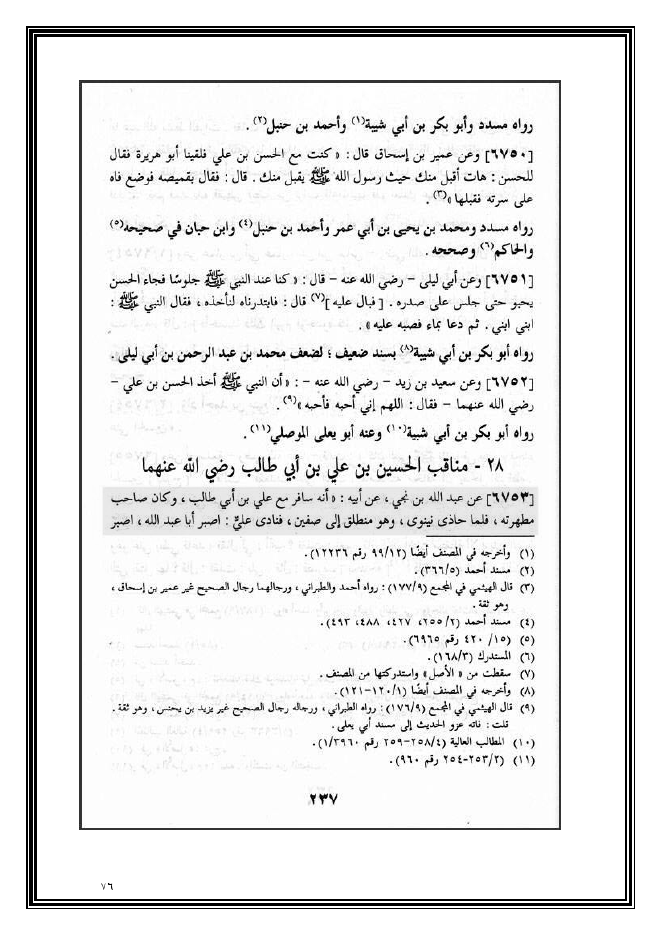 رواه مسدد وأبو بكر بن أبي شيبة(١) وأحمد بن حنبل(٢) .
[٦٧٥٠] وعن عمير بن إسحاق قال : « كنت مع الحسن بن علي فلقينا أبو هريرة فقال
للحسن : هات أقبل منك حيث رسول الله ﷺ يقبل منك . قال : فقال بقميصه فوضع فاه
على سرته فقبلها »(٣) .
رواه مسدد ومحمد بن يحيى بن أبي عمر وأحمد بن حنبل(٤) وابن حبان في صحيحه(٥)
والحاكم(٦) وصححه .
[٦٧٥١] وعن أبي ليلى – رضي الله عنه – قال : « كنا عند النبي ﷺ جلوسًا فجاء الحسن
يحبو حتى جلس على صدره . [ فبال عليه ](٧) قال : فابتدرناه لنأخذه ، فقال النبي ﷺ :
ابني ابني . ثم دعا بماء فصبه عليه » .
رواه أبو بكر بن أبي شيبة(٨) بسند ضعيف ؛ لضعف محمد بن عبد الرحمن بن أبي ليلى .
[٦٧٥٢] وعن سعيد بن زيد – رضي الله عنه – : « أن النبي ﷺ أخذ الحسن بن علي –
رضي الله عنهما – فقال : اللهم إني أحبه فأحبه »(٩) .
رواه أبو بكر بن أبي شيبة(١٠) وعنه أبو يعلى الموصلي(١١) .
٢٨ - مناقب الحسين بن علي بن أبي طالب رضي الله عنهما
[٦٧٥٣] عن عبد الله بن نجي ، عن أبيه : « أنه سافر مع علي بن أبي طالب ، وكان صاحب
مطهرته ، فلما حاذى نينوى ، وهو منطلق إلى صفين ، فنادى عليٌّ : اصبر أبا عبد الله ، اصبر
(١) وأخرجه في المصنف أيضًا (٩٩/١٢ رقم ١٢٢٣٦) .
(٢) مسند أحمد (٣٦٦/٥) .
(٣) قال الهيثمي في المجمع (١٧٧/٩) : رواه أحمد والطبراني ، ورجالهما رجال الصحيح غير عمير بن إسحاق ،
وهو ثقة .
(٤) مسند أحمد (٢٥٥/٢، ٤٢٧، ٤٨٨، ٤٩٣) .
(٥) (١٥/ ٤٢٠ رقم ٦٩٦٥) .
(٦) المستدرك (١٦٨/٣) .
(٧) سقطت من « الأصل » واستدركتها من المصنف .
(٨) وأخرجه في المصنف أيضًا (١٢٠/١-١٢١) .
(٩) قال الهيثمي في المجمع (١٧٦/٩) : رواه الطبراني ، ورجاله رجال الصحيح غير يزيد بن يحنس ، وهو ثقة .
قلت : فاته عزو الحديث إلى مسند أبي يعلى .
(١٠) المطالب العالية (٢٥٨/٤-٢٥٩ رقم ١/٣٩٦٠) .
(١١) (٢٥٣/٢-٢٥٤ رقم ٩٦٠) .
٢٣٧
٧٦